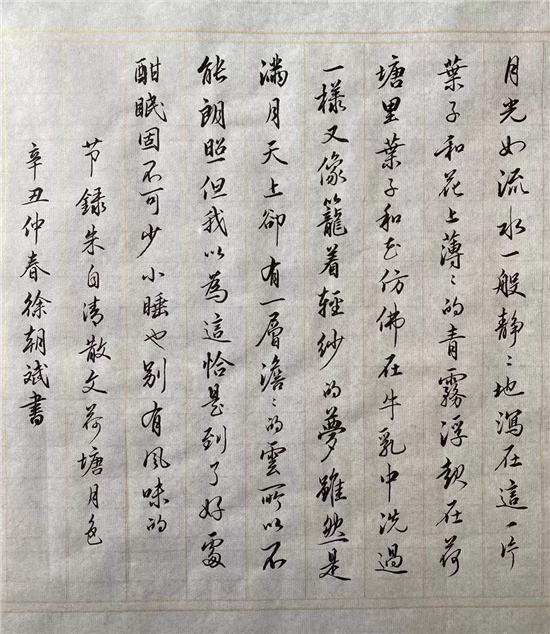 月光如流水一般静ミ地瀉在這一片
葉子和花上薄ミ的青霧浮起在荷
塘里葉子和花仿佛在牛乳中洗過
一樣又像籠着輕紗的夢雖然是
满月天上卻有一層澹ミ的雲所以不
能朗照但我以為這恰是到了好處
酣眠固不可少小睡也别有風味的
节録朱自清散文荷塘月色
辛丑仲春徐朝斌書